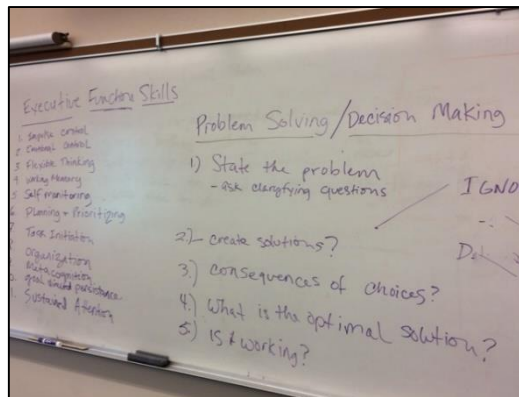 Executive Function Skills
1. Impulse control
2. Emotional Control
3 Flexible Thinking
4 Working Memory
5 Self monitoring
6 Planning + Prioritizing
7 Task Initiation
Organization
Metacognition
goal directed persistence
Sustained Attention
Problem Solving/Decision Making
1) State the problem
- ask clarifying questions
2.) - create solutions?
3.) consequences of choices?
4.) What is the optimal solution?
5.) Is it working?
IGNO